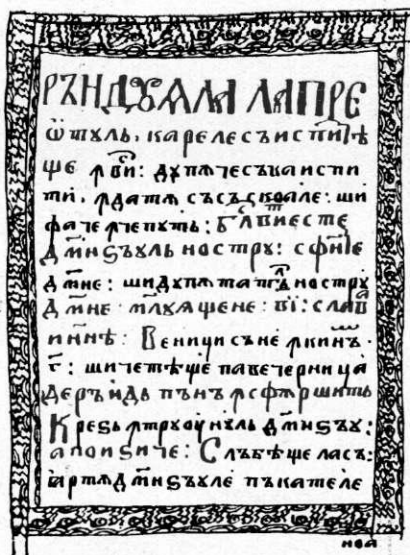 РЪНДꙊѦЛА ЛАПРЕ
ѿтꙋль· кареле съисп
ще ꙟви: дꙋпѫчесъваиспи
ти· ꙟдатѫ съсъскоале: ши
фаче ꙟчепꙋть: бл҃ви есте
дм҃неꙁъꙋль нострꙋ:
дм҃не: шидꙋпѫтат нострꙋ
дм҃не милꙋѧщене: слав
Веницисъне ꙟкин
г҃: шичетѣще павечерница
дерѫндь пънъ ꙟсфѫршить
Крезь ꙟтрꙋѹнꙋль дм҃неꙁъꙋ:
апоиꙁиче: Слъбѣщеласъ:
ꙗртѫ дм҃неꙁъꙋле пъкателе
ноа